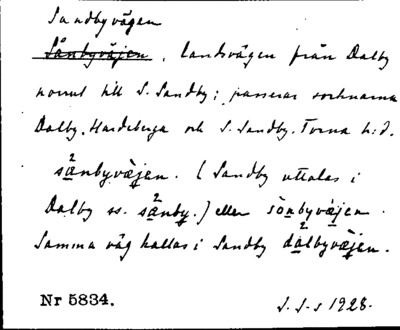 Sandbyvägen
Sånbyväjen, landsvägen från Dalby
norrut till S. Sandby; passerar socknarna
Dalby, Hardeberga och S. Sandby. Torna h:d.
sanbyväjen. (Sandby uttalas i
Dalby ss. sanby.) eller sònbyväjen.
Samma väg kallas i Sandby dalbyväjen.
Nr 5834.
1928.